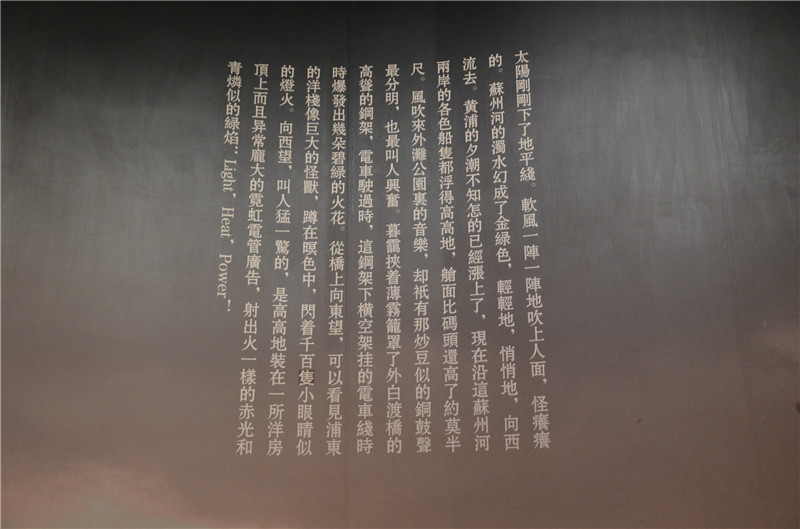 太陽剛剛下了地平綫。軟風一陣一陣地吹上人面，怪癢癢
的。蘇州河的濁水幻成了金綠色，輕輕地，悄悄地，向西
流去。黄浦的夕潮不知怎的已經漲上了，現在沿這蘇州河
兩岸的各色船隻都浮得高高地，艙面比碼頭還高了約莫半
尺。風吹來外灘公園裏的音樂，却衹有那炒豆似的銅鼓聲
最分明，也最叫人興奮。暮靄挾着薄霧籠罩了外白渡橋的
高聳的鋼架，電車駛過時，這鋼架下横空架挂的電車綫時
時爆發出幾朵碧綠的火花。從橋上向東望，可以看見浦東
的洋棧像巨大的怪獸，蹲在暝色中，閃着千百隻小眼睛似
的燈火。向西望，叫人猛一驚的，是高高地裝在一所洋房
頂上而且异常龐大的霓虹電管廣告，射出火一樣的赤光和
青燐似的綠焰：Light, Heat, Power!